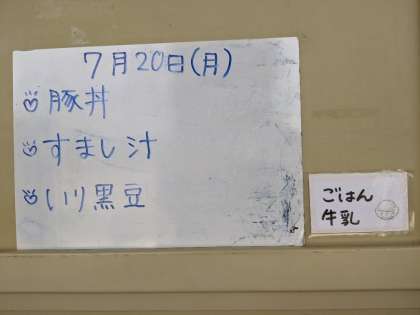 7月20日(月)
豚丼
すまし汁
いり黒豆
ごはん
牛乳